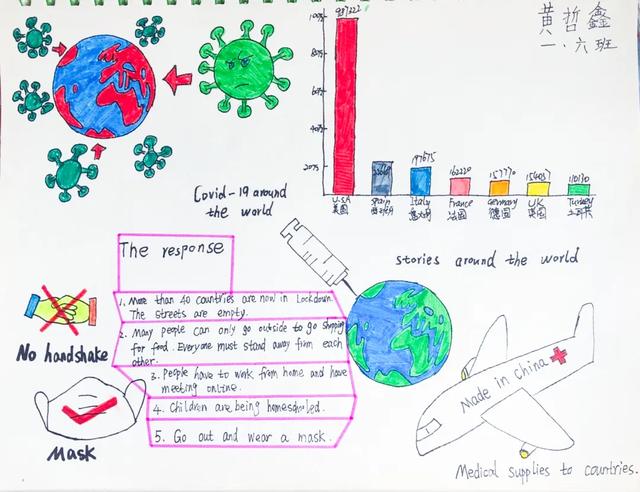 黄哲鑫
一.六班
197675
162220
157770
U.SA
Spain
Italy
France
Germany
UK
Turkey
美国
意大利
法国
德国
英国
土耳其
Covid-19 around
the world
stories around the world
The response
1. More than 40 countries are now in Lockdown.
The streets are empty.
2. Many people can only go outside to go shopping
for food. Everyone must stand away from each
other.
3. People have to work from home and have
meeting online.
4. Children are being homeschooled.
5. Go out and wear a mask.
No handshake
Mask
Made in China
Medical supplies to countries.